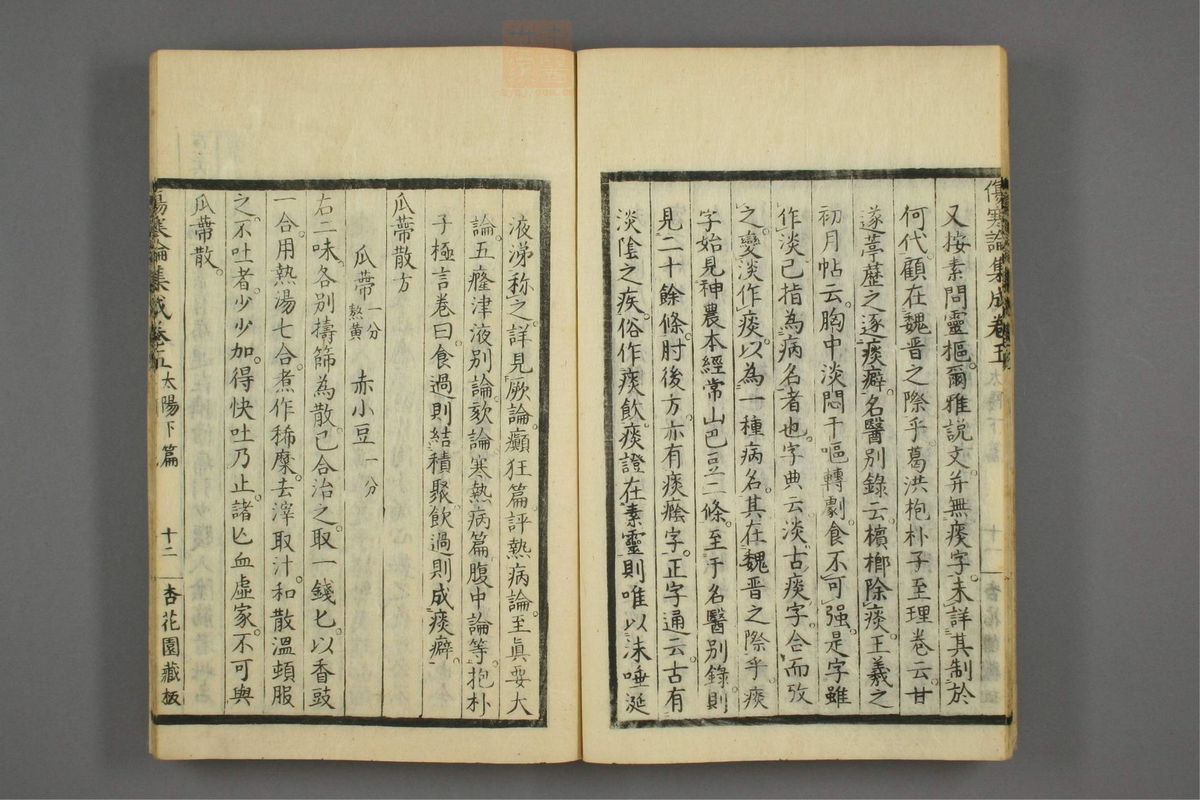 傷寒論集成卷五
又按素問靈樞爾雅說文并無痰字未詳其制於
何代顧在魏晉之際乎葛洪抱朴子至理卷云甘
遂葶藶之逐痰癖名醫別錄云檳榔除痰王羲之
初月帖云胸中淡悶干嘔轉劇食不可强是字雖
作淡已指為病名者也字典云淡古痰字合而攷
之變淡作痰以為一種病名其在魏晉之際乎痰
字始見神農本經常山巴豆二條至于名醫別錄則
見二十餘條肘後方亦有痰癊字正字通云古有
淡陰之疾俗作痰飲痰證在素靈則唯以沫唾涎
液涕称之詳見厥論癲狂篇評熱病論至眞要大
論五癃津液別論欬論寒熱病篇腹中論等抱朴
子極言卷曰食過則結積聚飲過則成痰癖
瓜蔕散方
瓜蔕一分熬黄 赤小豆一分
右二味各別擣篩為散已合治之取一錢匕以香豉
一合用熱湯七合煮作稀糜去滓取汁和散溫頓服
之不吐者少少加得快吐乃止諸亾血虛家不可與
瓜蔕散
傷寒論集成卷五 太陽下篇 十二 杏花園藏板